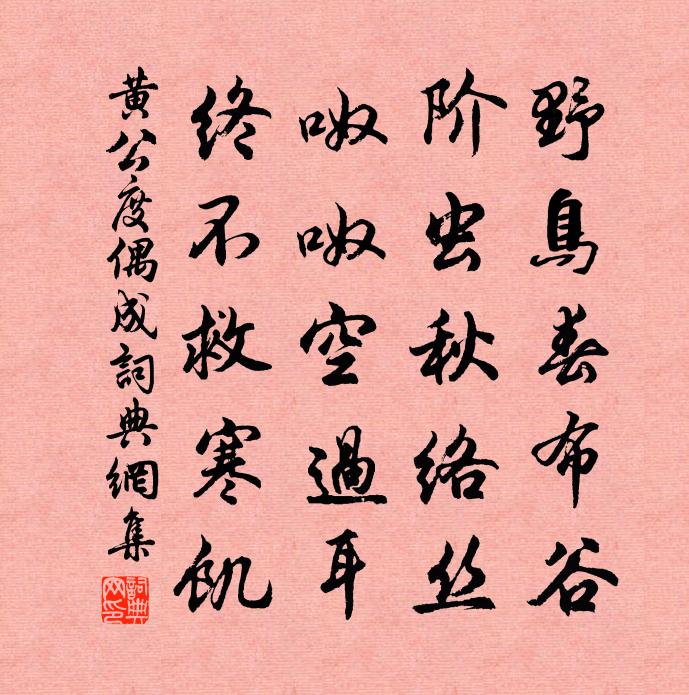 野鳥春布谷
阶虫秋络丝
呶呶空過耳
终不救寒飢
黃公度偶成詞典網集
詞典網印